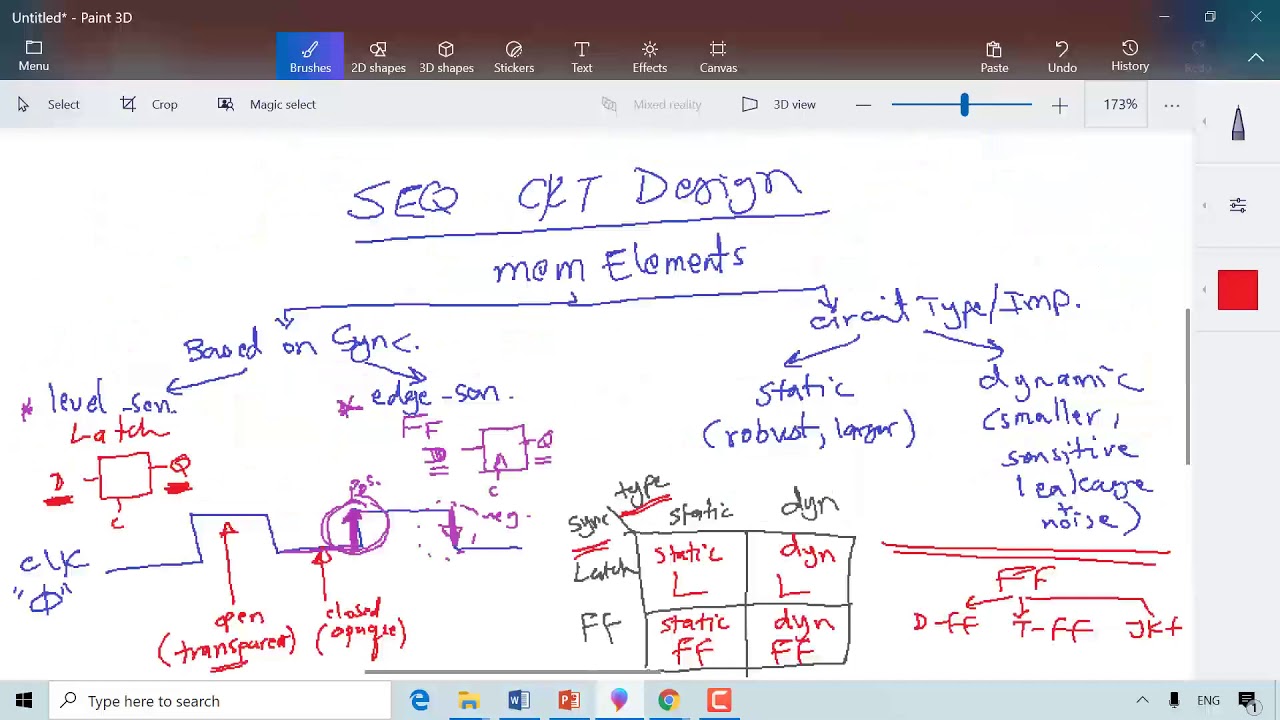 Untitled* - Paint 3D
Menu
Brushes
2D shapes
3D shapes
Stickers
Text
Effects
Canvas
Paste
Undo
History
Redo
Select
Crop
Magic select
Mixed reality
3D view
173%
SEQ CKT Design
mem Elements
Based on Sync.
circuit Type/Imp.
* level-sen.
* edge-sen.
static
(robust, larger)
dynamic
(smaller,
sensitive
leakage
+
noise)
Latch
FF
D
Q
C
D
Q
C
pos.
neg.
CLK
"Φ"
open
(transparent)
closed
(opaque)
type
Sync
static
dyn
Latch
static
L
dyn
L
FF
static
FF
dyn
FF
FF
D-FF
T-FF
JKf
Type here to search
ENG
1